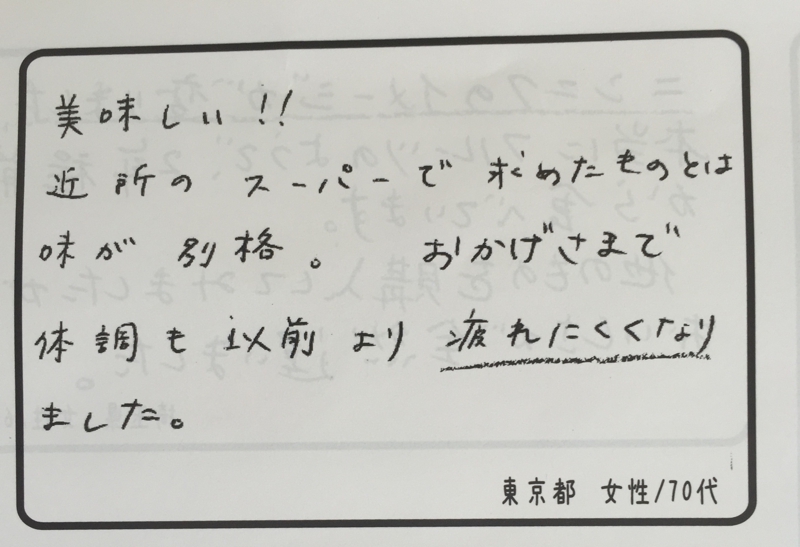 美味しい!!
近所の スーパーで 求めたものとは
味が 別格。 おかげさまで
体調も 以前 より 疲れにくくなり
ました。
東京都 女性/70代